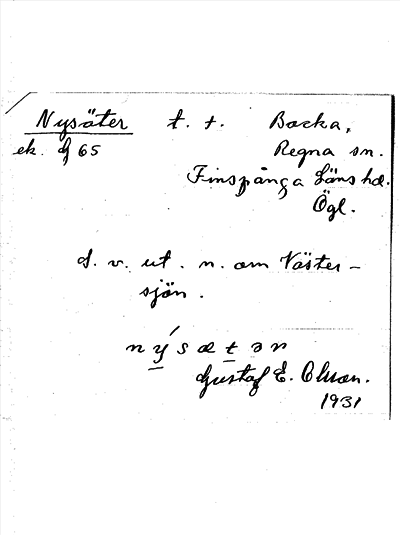 Nysäter t. t. Backa,
ek. G 65 Regna sn.
Finspånga Läns hd.
Ögl.
S. v. ut. n. om Väster-
sjön.
nýsætər
Gustaf E. Olsson.
1931